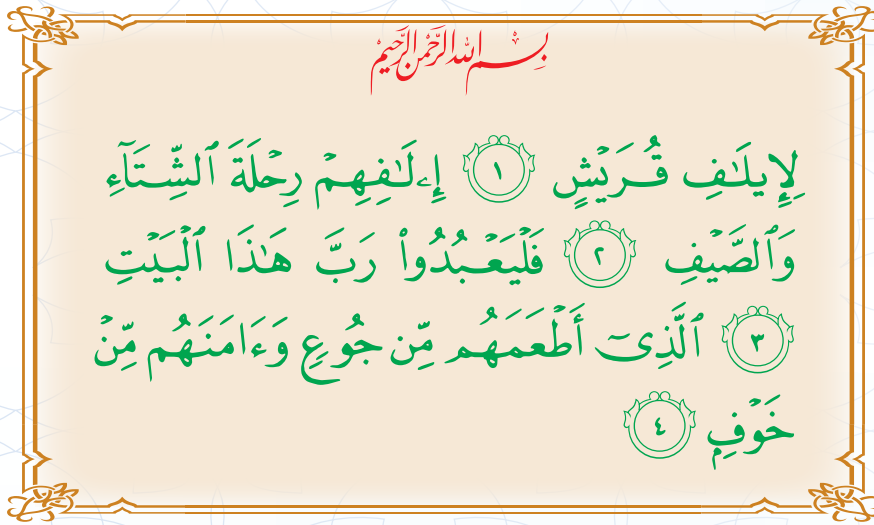 بِسْمِ اللهِ الرَّحْمٰنِ الرَّحِيْمِ
لِإِيلَٰفِ قُرَيْشٍ ١ إِۦلَٰفِهِمْ رِحْلَةَ ٱلشِّتَآءِ
وَٱلصَّيْفِ ٢ فَلْيَعْبُدُوا۟ رَبَّ هَٰذَا ٱلْبَيْتِ
٣ ٱلَّذِىٓ أَطْعَمَهُم مِّن جُوعٍ وَءَامَنَهُم مِّنْ
خَوْفٍ ٤